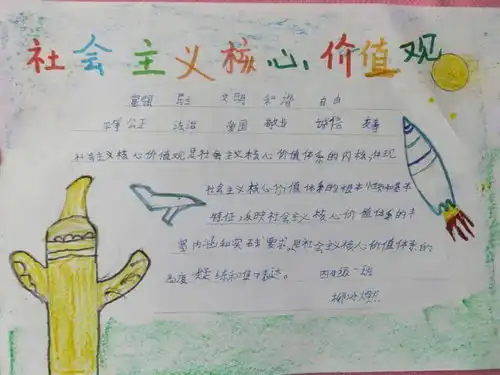 社会主义核心价值观
富强 民主 文明 和谐 自由
平等 公正 法治 爱国 敬业 诚信 友善
社会主义核心价值观是社会主义核心价值体系的内核,体现
社会主义核心价值体系的根本性质和基本
特征,反映社会主义核心价值体系的丰
富内涵和实践要求,是社会主义核心价值体系的
高度凝练和集中表达。 四年级一班